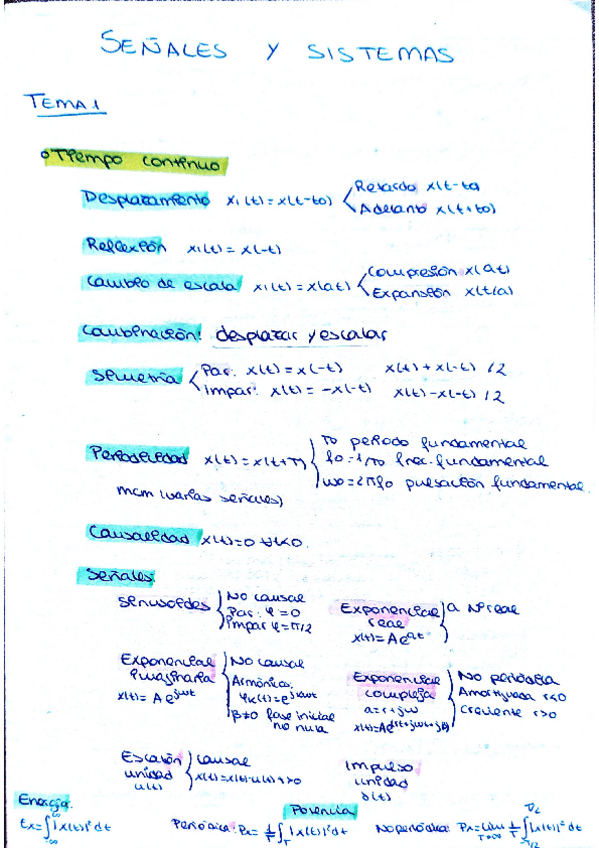 SEÑALES Y SISTEMAS
TEMA 1
Tiempo continuo
Desplazamiento x₁(t)=x(t-to) Retardo x(t-to)
Adelanto x(t+to)
Reflexión x₁(t)=x(-t)
Cambio de escala x₁(t)=x(at) Compresión x(at)
Expansión x(t/a)
Combinación: desplazar y escalar
Simetría Par: x(t)=x(-t) x(t)+x(-t) /2
Impar: x(t)=-x(-t) x(t)-x(-t) /2
Periodicidad x(t)=x(t+T) To periodo fundamental
fo=1/To frec. fundamental
ωo=2πfo pulsación fundamental.
mcm (varias señales)
Causalidad x(t)=0 ∀t<0.
Señales:
Senusoides No causal
Par: φ=0
Impar φ=π/2
Exponencial real a nº real
x(t)=Ae^{at}
Exponencial imaginaria No causal
x(t)=Ae^{jωt} Armónica:
φk(t)=e^{jkωt}
β≠0 fase inicial
no nula
Exponencial compleja No periódica
a=r+jω Amortiguada r<0
Creciente r>0
Escalón unidad Causal
u(t) x(t)=x(t)·u(t) t>0
Impulso
unidad
δ(t)
Energía:
Ex=∫_{-∞}^{∞}|x(t)|²dt
Potencia
Periódica: Px=1/T ∫_T |x(t)|²dt No periódica: Px=lim_{T→∞} 1/T ∫_{-T/2}^{T/2}|x(t)|²dt